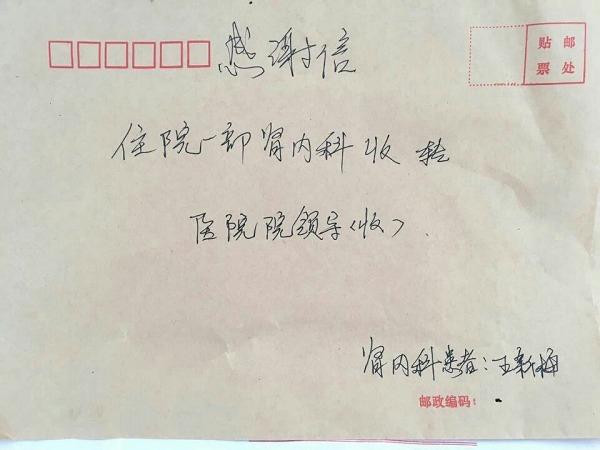 感谢信
贴邮
票处
住院一部肾内科收转
医院院领导(收)
肾内科患者:王新梅
邮政编码: